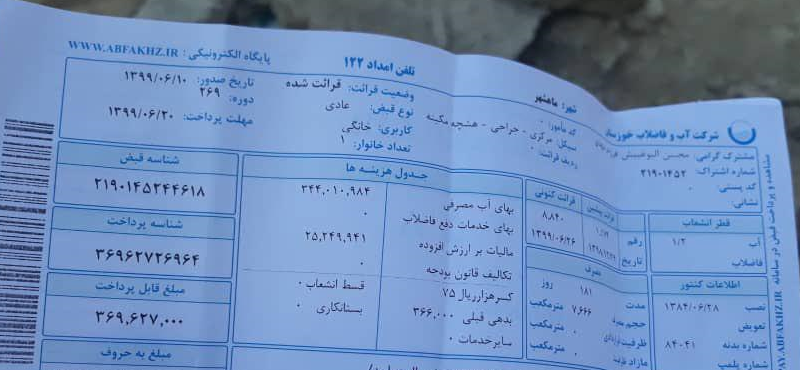 WWW.ABFAKHZ.IR : پایگاه الکترونیکی
تلفن امداد ۱۲۲
شهر: ماهشهر
شرکت آب و فاضلاب
تاریخ صدور: ۱۳۹۹/۰۶/۱۰
دوره: ۲۶۹
مهلت پرداخت: ۱۳۹۹/۰۶/۲۰
وضعیت قرائت: قرائت شده
نوع قبض: عادی
کاربری: خانگی
تعداد خانوار: ۱
کد مأمور: ۰
ردیف قرائت: ۰
مشترک گرامی: محسن
شماره اشتراک: ۲۱۹۰۱۴۵۲
کد پستی: ۰
نشانی:
شناسه قبض
۲۱۹۰۱۴۵۲۴۴۶۱۸
شناسه پرداخت
۳۶۹۶۲۷۲۶۹۶۴
مبلغ قابل پرداخت
۳۶۹,۶۲۷,۰۰۰
مبلغ به حروف
جدول هزینه ها
بهای آب مصرفی ۳۴۴,۰۱۰,۹۸۴
بهای خدمات دفع فاضلاب ۰
مالیات بر ارزش افزوده ۲۵,۲۴۹,۹۴۱
تکالیف قانون بودجه
کسرهزارریال ۷۵ قسط انشعاب ۰
بدهی قبلی ۳۶۶,۰۰۰ بستانکاری ۰
سایرخدمات ۰
قرائت کنونی
رقم ۸,۸۴۰
تاریخ ۱۳۹۹/۰۶/۲۶
مدت ۱۸۱ روز
۷,۶۶۶ مترمکعب
۰ مترمکعب
۰ مترمکعب
قطر انشعاب
آب ۱/۲
فاضلاب
اطلاعات کنتور
نصب ۱۳۸۴/۰۶/۲۸
تعویض
شماره بدنه ۸۴۰۴۱
شماره پلمپ
مشاهده و پرداخت قبض در سامانه